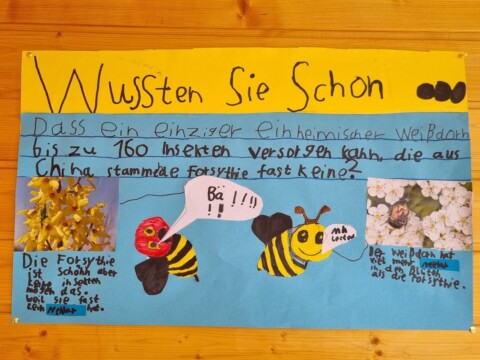 Wussten Sie Schon ...
Dass ein einziger einheimischer Weißdorn
bis zu 160 Insekten versorgen kann, die aus
China stammende Forsythie fast keine?
Bä !!!!
!!
mh
lecker
Die Forsythie
ist schohn aber
keine insekten
mögen das.
weil sie fast
kein Nektar hat.
Der Weißdorn hat
viel mehr Nektar
in den Blüten
als die Forsythie.